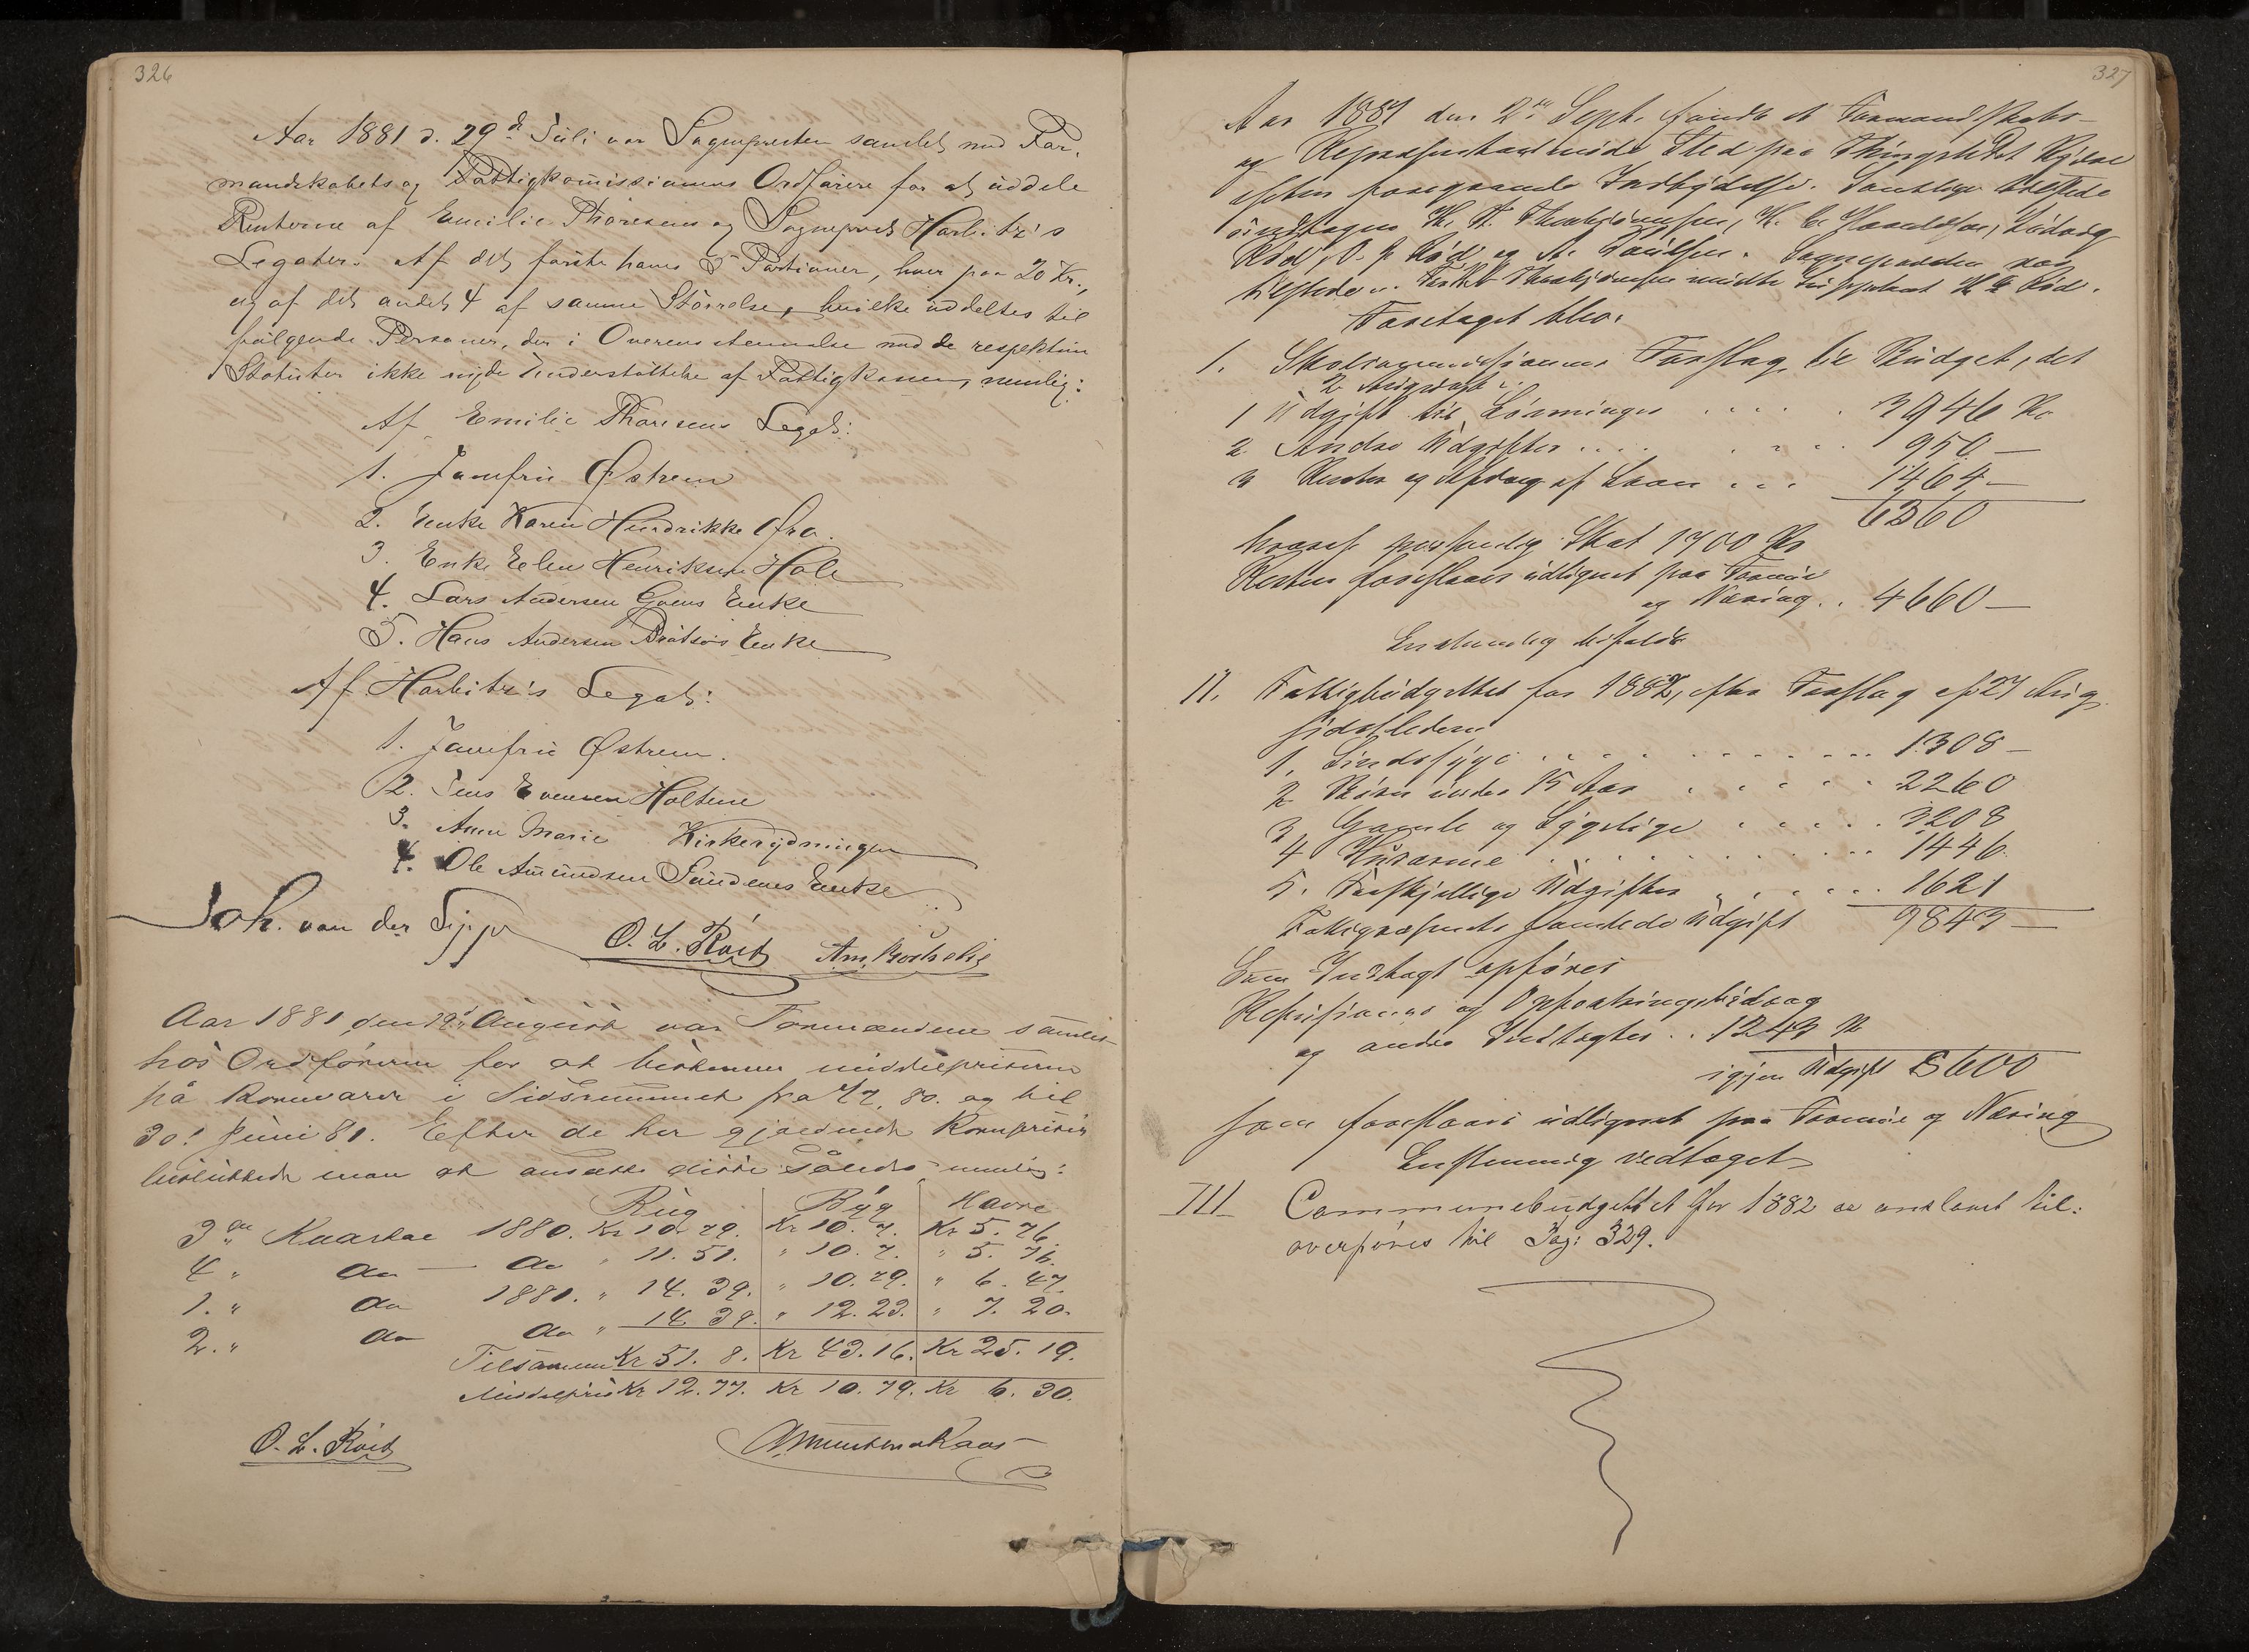 326
Aar 1881 d. 29de Juli var Sognepresten samlet med For-
mandskabets og Fattigkomissionens Ordførere for at uddele
Renterne af Emilie Thoresens og Sogneprest Harbitz's
Legater. Af det første haves 5 Portioner, hver paa 20 Kr.,
og af det andet 4 af samme Størrelse, hvilke uddeltes til
følgende Personer, der i Overensstemmelse med de respektive
Statuter ikke nyde Understøttelse af Fattigkassen, nemlig:
Af Emilie Thoresens Legat:
1. Jomfru Østrem
2. Enke Karen Hendrikke Øra.
3. Enke Elen Henriksen Hole
4. Lars Andersen Enke
5. Hans Andersen Enke
Af Harbitz's Legat:
1. Jomfru Østrem.
2. Jens Evensen Holtene
3. Anne Marie Kirkerydningen
4. Ole Amundsen Sundenes Enke
Joh. van der
O. L. Röed Am.
Aar 1881 den 19de August var Formændene samlet
hos Ordføreren for at bestemme middelpriserne
på Kornvarer i Tidsrummet fra 1/7. 80. og til
30. Juni 81. Efter de her gjældende Kornpriser
besluttede man at ansætte disse således nemlig:
Rug Byg Havre
3die Kvartal 1880. Kr 10. 79. Kr 10. 7. Kr 5. 76.
4 " do — do " 11. 51. " 10. 7. " 5. 76.
1. " do 1881. " 14. 39. " 10. 79. " 6. 47.
2. " do do " 14. 39. " 12. 23. " 7. 20.
Tilsammen Kr 51. 8. Kr 43. 16. Kr 25. 19.
Middelpris Kr 12. 77. Kr 10. 79. Kr 6. 30.
O. L. Röed
327
Aar 1881 den 2den Sept. fandt et Formandskabs-
og Repræsentantmøde Sted paa Thingstedet
efter foregaaende Indbydelse. Samtlige tilstede
undtagen Ludvig
og A. Paulsen. Sognepresten var
tilstede. mødte Suppleant
Foretaget blev.
1. Skolekommissionens Forslag til Budget, det
1 Udgift til Lønninger . . . . . 3946 Kr
2. Andre Udgifter . . . . 950 —
3 Renter og Afdrag af Laan . . . 1464 —
6360
hvoraf personlig Skat 1700 Kr
Resten foreslaaes udlignet paa Formue
og Næring . . 4660 —
Enstemmig bifaldt
II. Fattigbudgettet for 1882, efter Forslag af 27 Aug.
sidstleden
1. Sindssyge . . . . . . 1308 —
2 Børn under 15 Aar . . . . . 2260
3 Gamle og Sygelige . . . . . 3208
4 Husarme . . . . . . 1446
5. Forskjellige Udgifter . . . . . 1621
Fattigvæsenets samlede Udgift 9843 —
Som Indtægt opføres
Refusioner og Oppebringsbidrag
og andre Indtægter . . 1243 Kr
igjen Udgift 8600
som foreslaaes udlignet paa Formue og Næring
Enstemmig vedtaget
III Communebudgettet for 1882 er anslaaet til:
overføres til Pag: 329.